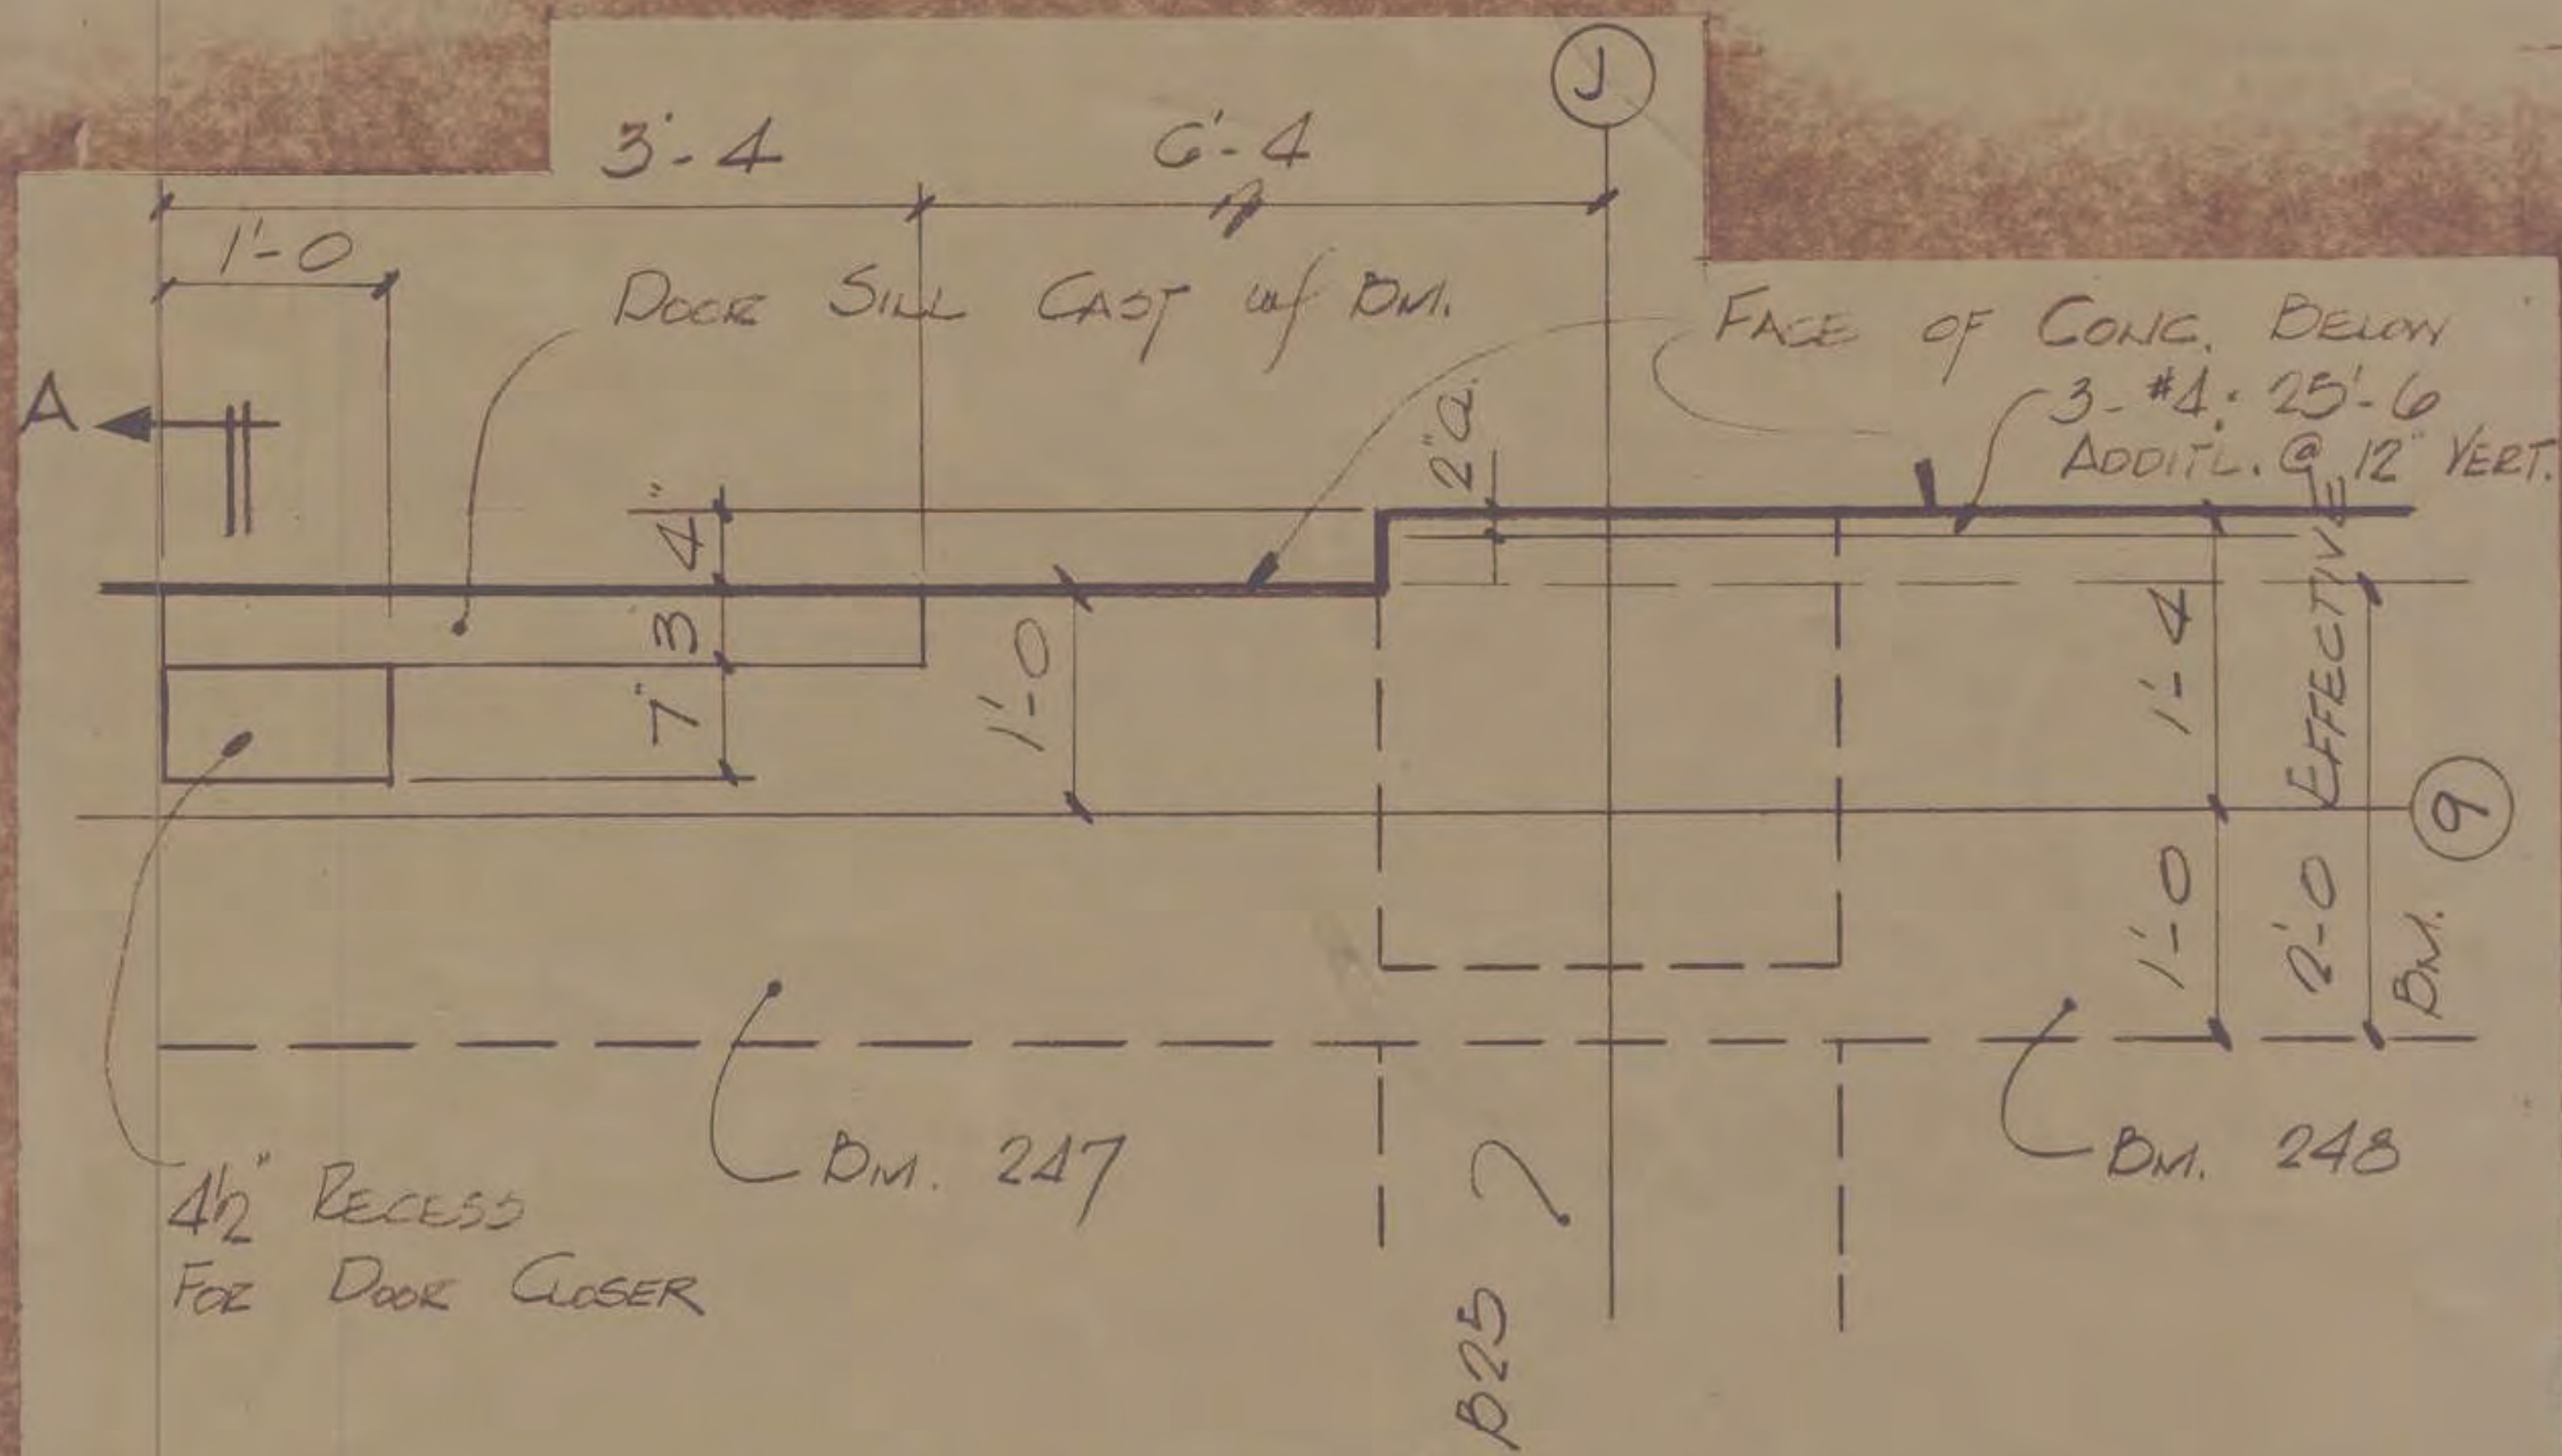 J
3'-4
6'-4
1'-0
DOOR SILL CAST w/ BM.
FACE OF CONC. BELOW
3-#4: 25'-6
ADDIT'L. @ 12" VERT.
A
2"
4"
3
7"
1'-0
1'-4
1'-0
2'-0 EFFECTIVE
BM.
9
BM. 247
BM. 248
4½" RECESS
FOR DOOR CLOSER
B25